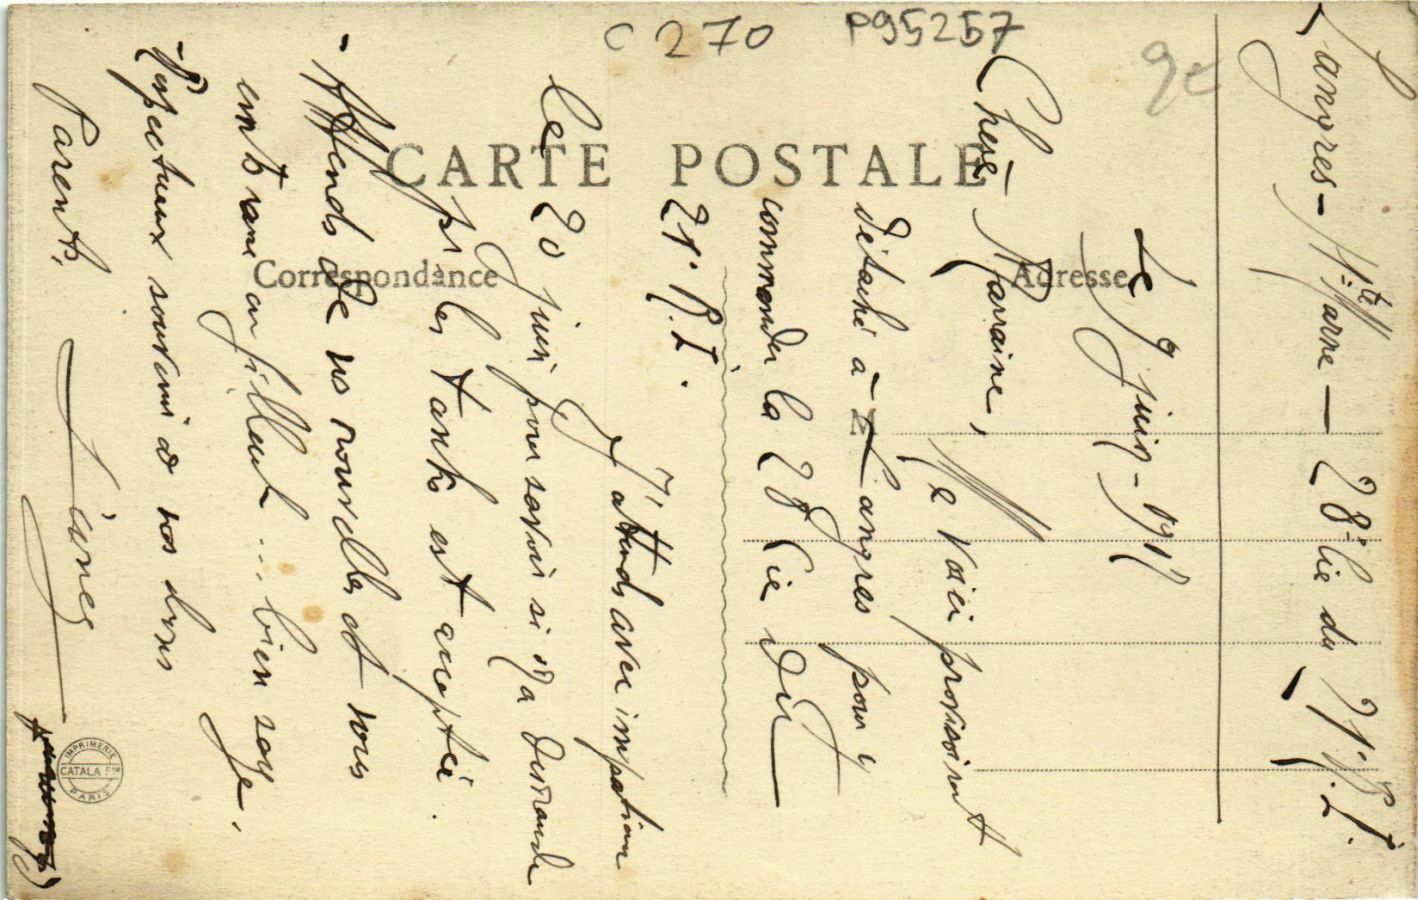 C 270
P95257
9e
CARTE POSTALE
Correspondance
Adresse
M
Langres - Hte Marne - 28e Cie du 21e R.I.
Le 9 juin - 1917
Chère Marraine,
Me voici provisoirement
détaché à Langres pour y
commander la 28 Cie du
21e R.I.
J'attends avec impatience
le 20 juin pour savoir si ma demande
pr les tanks est acceptée.
Attends de vos nouvelles et vous
embrasse en filleul ... bien sage.
Respectueux souvenir à vos chers
Parents.
IMPRIMERIE
CATALA Fres
PARIS